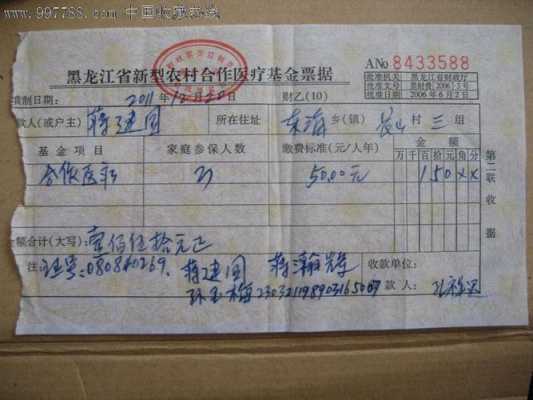 www.997788.com 中国收藏在线
黑龙江省新型农村合作医疗基金票据
A No 8433588
批准机关 黑龙江省财政厅
批准文号
批准日期 2006年6月2日
填制日期： 2011年12月20日 财乙(10)
款人(或户主) 蒋建国 所在住址 东海 乡(镇) 村 三 组
基金项目 家庭参保人数 缴费标准(元/人年) 金额
万 千 百 拾 元 角 分
合作医疗 3 50.00元 1 5 0 x x
第二联 收据
金额合计(大写): 壹佰伍拾元正
注 证号:080840269. 蒋建国 蒋瀚 收款单位:
玉梅 款人: